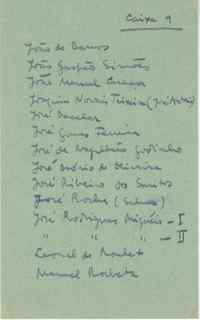 Caixa 9
João de Barros
João Gaspar Simões
João Manuel
Joaquim Novais Teixeira (José
José Bacelar
José Gomes Ferreira
José de Magalhães Godinho
José Osório de Oliveira
José Ribeiro dos Santos
José Rocha (
José Rodrigues Miguéis - I
" " " - II
Leonel de
Manuel